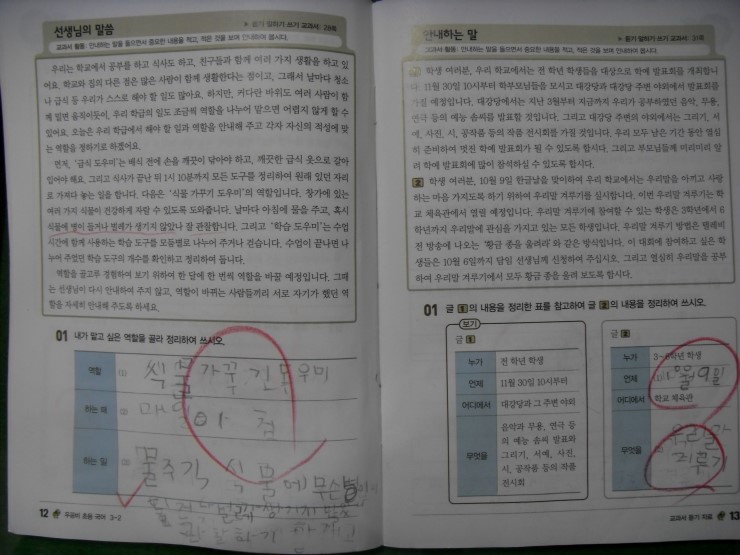 선생님의 말씀
▶ 듣기 말하기 쓰기 교과서: 28쪽
교과서 활동: 안내하는 말을 들으면서 중요한 내용을 적고, 적은 것을 보며 안내하여 봅시다.
우리는 학교에서 공부를 하고 식사도 하고, 친구들과 함께 여러 가지 생활을 하고 있
어요. 학교와 집의 다른 점은 많은 사람이 함께 생활한다는 점이고, 그래서 날마다 청소
나 급식 등 우리가 스스로 해야 할 일도 많아요. 하지만, 커다란 바위도 여러 사람이 함
께 밀면 움직이듯이, 우리 학급의 일도 조금씩 역할을 나누어 맡으면 어렵지 않게 할 수
있어요. 오늘은 우리 학급에서 해야 할 일과 역할을 안내해 주고 각자 자신의 적성에 맞
는 역할을 정하기로 하겠어요.
먼저, '급식 도우미'는 배식 전에 손을 깨끗이 닦아야 하고, 깨끗한 급식 옷으로 갈아
입어야 해요. 그리고 식사가 끝난 뒤 1시 10분까지 모든 도구를 정리하여 원래 있던 자리
로 가져다 놓는 일을 합니다. 다음은 '식물 가꾸기 도우미'의 역할입니다. 창가에 있는
여러 가지 식물이 건강하게 자랄 수 있도록 도와줍니다. 날마다 아침에 물을 주고, 혹시
식물에 병이 들거나 벌레가 생기지 않았나 잘 관찰합니다. 그리고 '학습 도우미'는 수업
시간에 함께 사용하는 학습 도구를 모둠별로 나누어 주거나 걷습니다. 수업이 끝나면 나
누어 주었던 학습 도구의 개수를 확인하고 정리하여 둡니다.
역할을 골고루 경험하여 보기 위하여 한 달에 한 번씩 역할을 바꿀 예정입니다. 그때
는 선생님이 다시 안내하여 주지 않고, 역할이 바뀌는 사람들끼리 서로 자기가 했던 역
할을 자세히 안내해 주도록 하세요.
01 내가 맡고 싶은 역할을 골라 정리하여 쓰시오.
역할 (1) 식물 가꾸긴 도우미
하는 때 (2) 매일 아침
하는 일 (3) 물주기, 식물에 무슨
12 주공비 초등 국어 3-2
안내하는 말
▶ 듣기 말하기 쓰기 교과서: 31쪽
교과서 활동: 안내하는 말을 들으면서 중요한 내용을 적고, 적은 것을 보며 안내하여 봅시다.
1 학생 여러분, 우리 학교에서는 전 학년 학생들을 대상으로 학예 발표회를 개최합니
다. 11월 30일 10시부터 학부모님들을 모시고 대강당과 대강당 주변 야외에서 발표회를
가질 예정입니다. 대강당에서는 지난 3월부터 지금까지 우리가 공부하였던 음악, 무용,
연극 등의 예능 솜씨를 발표할 것입니다. 그리고 대강당 주변의 야외에서는 그리기, 서
예, 사진, 시, 공작품 등의 작품 전시회를 가질 것입니다. 우리 모두 남은 기간 동안 열심
히 준비하여 멋진 학예 발표회가 될 수 있도록 합시다. 그리고 부모님들께 미리미리 알
려 학예 발표회에 많이 참석하실 수 있도록 합시다.
2 학생 여러분, 10월 9일 한글날을 맞이하여 우리 학교에서는 우리말을 아끼고 사랑
하는 마음을 가지도록 하기 위하여 우리말 겨루기를 실시합니다. 이번 우리말 겨루기는 학
교 체육관에서 열릴 예정입니다. 우리말 겨루기에 참여할 수 있는 학생은 3학년에서 6
학년까지 우리말에 관심을 가지고 있는 모든 학생입니다. 우리말 겨루기 방법은 텔레비
전 방송에 나오는 '황금 종을 울려라'와 같은 방식입니다. 이 대회에 참여하고 싶은 학
생들은 10월 6일까지 담임 선생님께 신청하여 주십시오. 그리고 열심히 우리말을 공부
하여 우리말 겨루기에서 모두 황금 종을 울려 보도록 합시다.
01 글 1의 내용을 정리한 표를 참고하여 글 2의 내용을 정리하여 쓰시오.
보기
글 1
누가 전 학년 학생
언제 11월 30일 10시부터
어디에서 대강당과 그 주변 야외
무엇을 음악과 무용, 연극 등
의 예능 솜씨 발표와
그리기, 서예, 사진,
시, 공작품 등의 작품
전시회
글 2
누가 3~6학년 학생
언제 (1) 10월 9일
어디에서 학교 체육관
무엇을 (2) 우리말
겨루기
교과서 듣기 자료 13